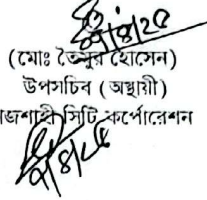 (মোঃ তৈমুর হোসেন)
উপসচিব (অস্থায়ী)
রাজশাহী সিটি কর্পোরেশন